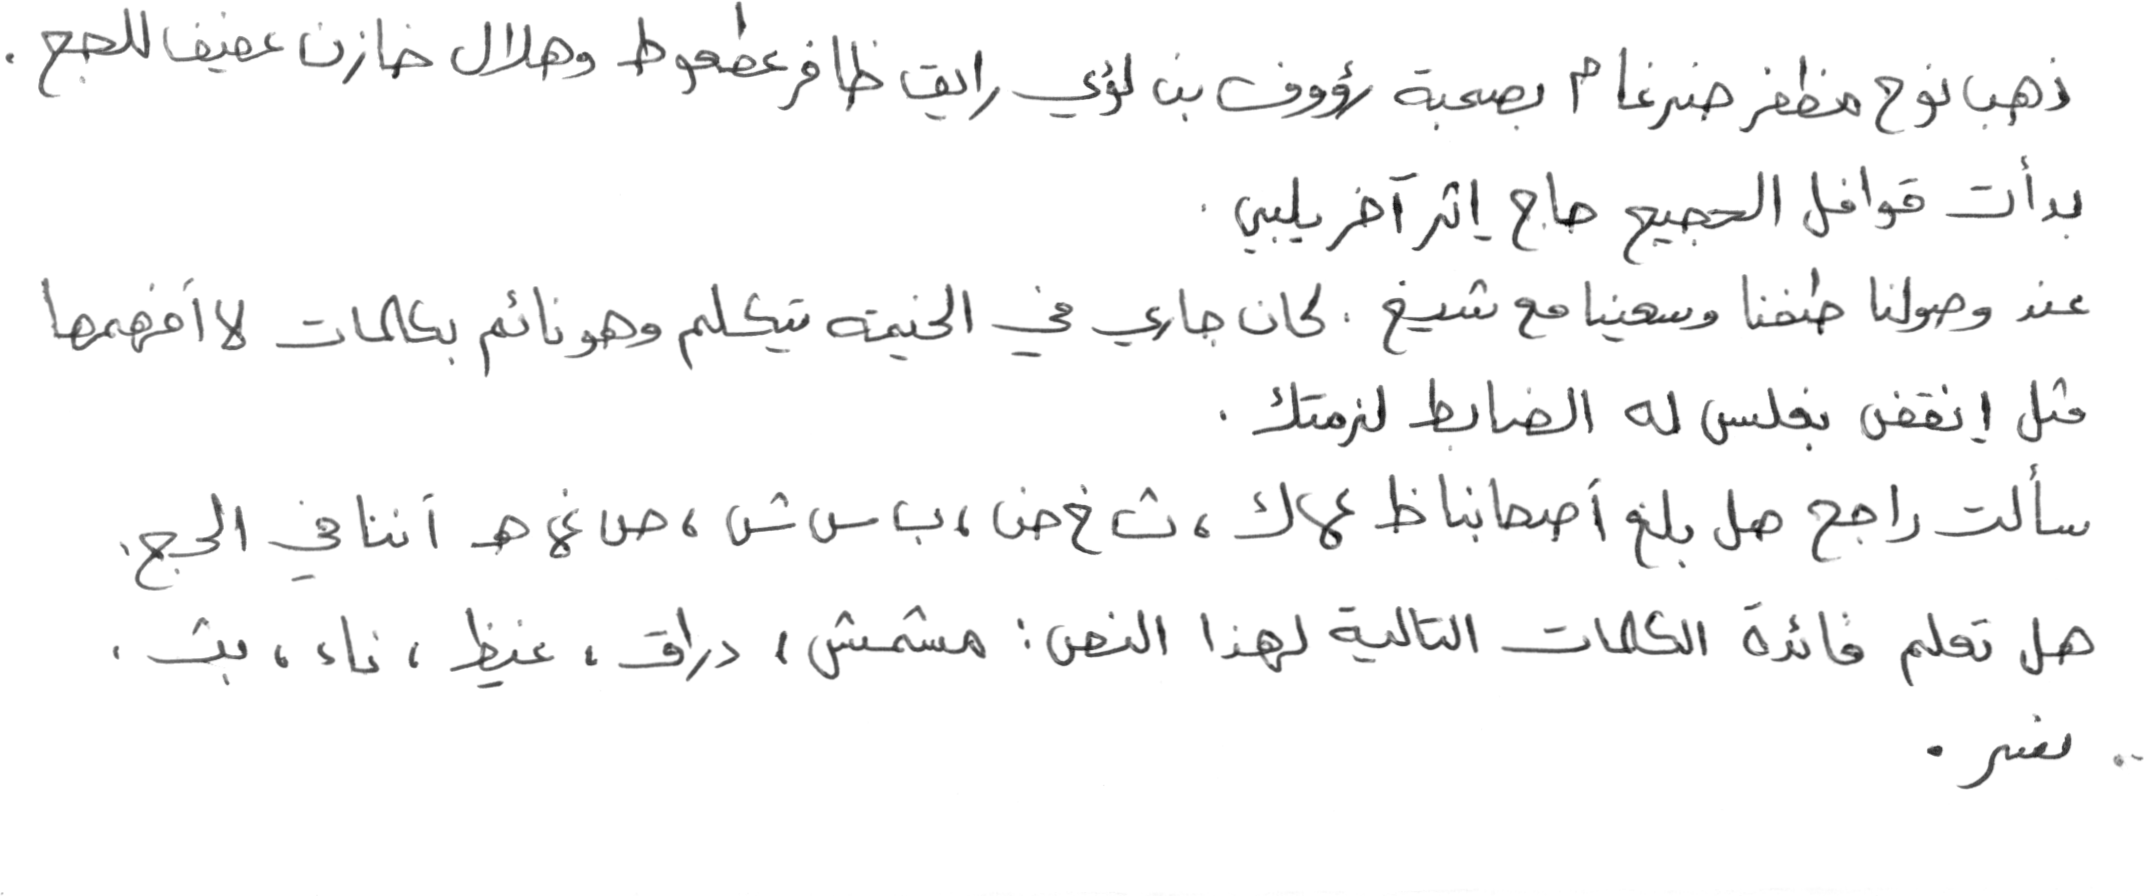 ذهب نوح مظفر ضرغام بصحبة رؤوف بن لؤي رايق ظافر عطعوط وهلال خازن عفيف للحج .
بدأت قوافل الحجيج حاج إثر آخر يلبي .
عند وصولنا طفنا وسعينا مع شيخ . كان جاري في الخيمة يتكلم وهو نائم بكلمات لا أفهمها
مثل إنقض بغلس له الضابط لزمتك .
سألت راجح هل بلغ أصحابنا ظ ع لا ك ، ث غ ض ، ب س ش ، ص غ هـ أننا في الحج .
هل تعلم فائدة الكلمات التالية لهذا النص : مشمش ، دراق ، غيظ ، ناء ، بث .
نعم .